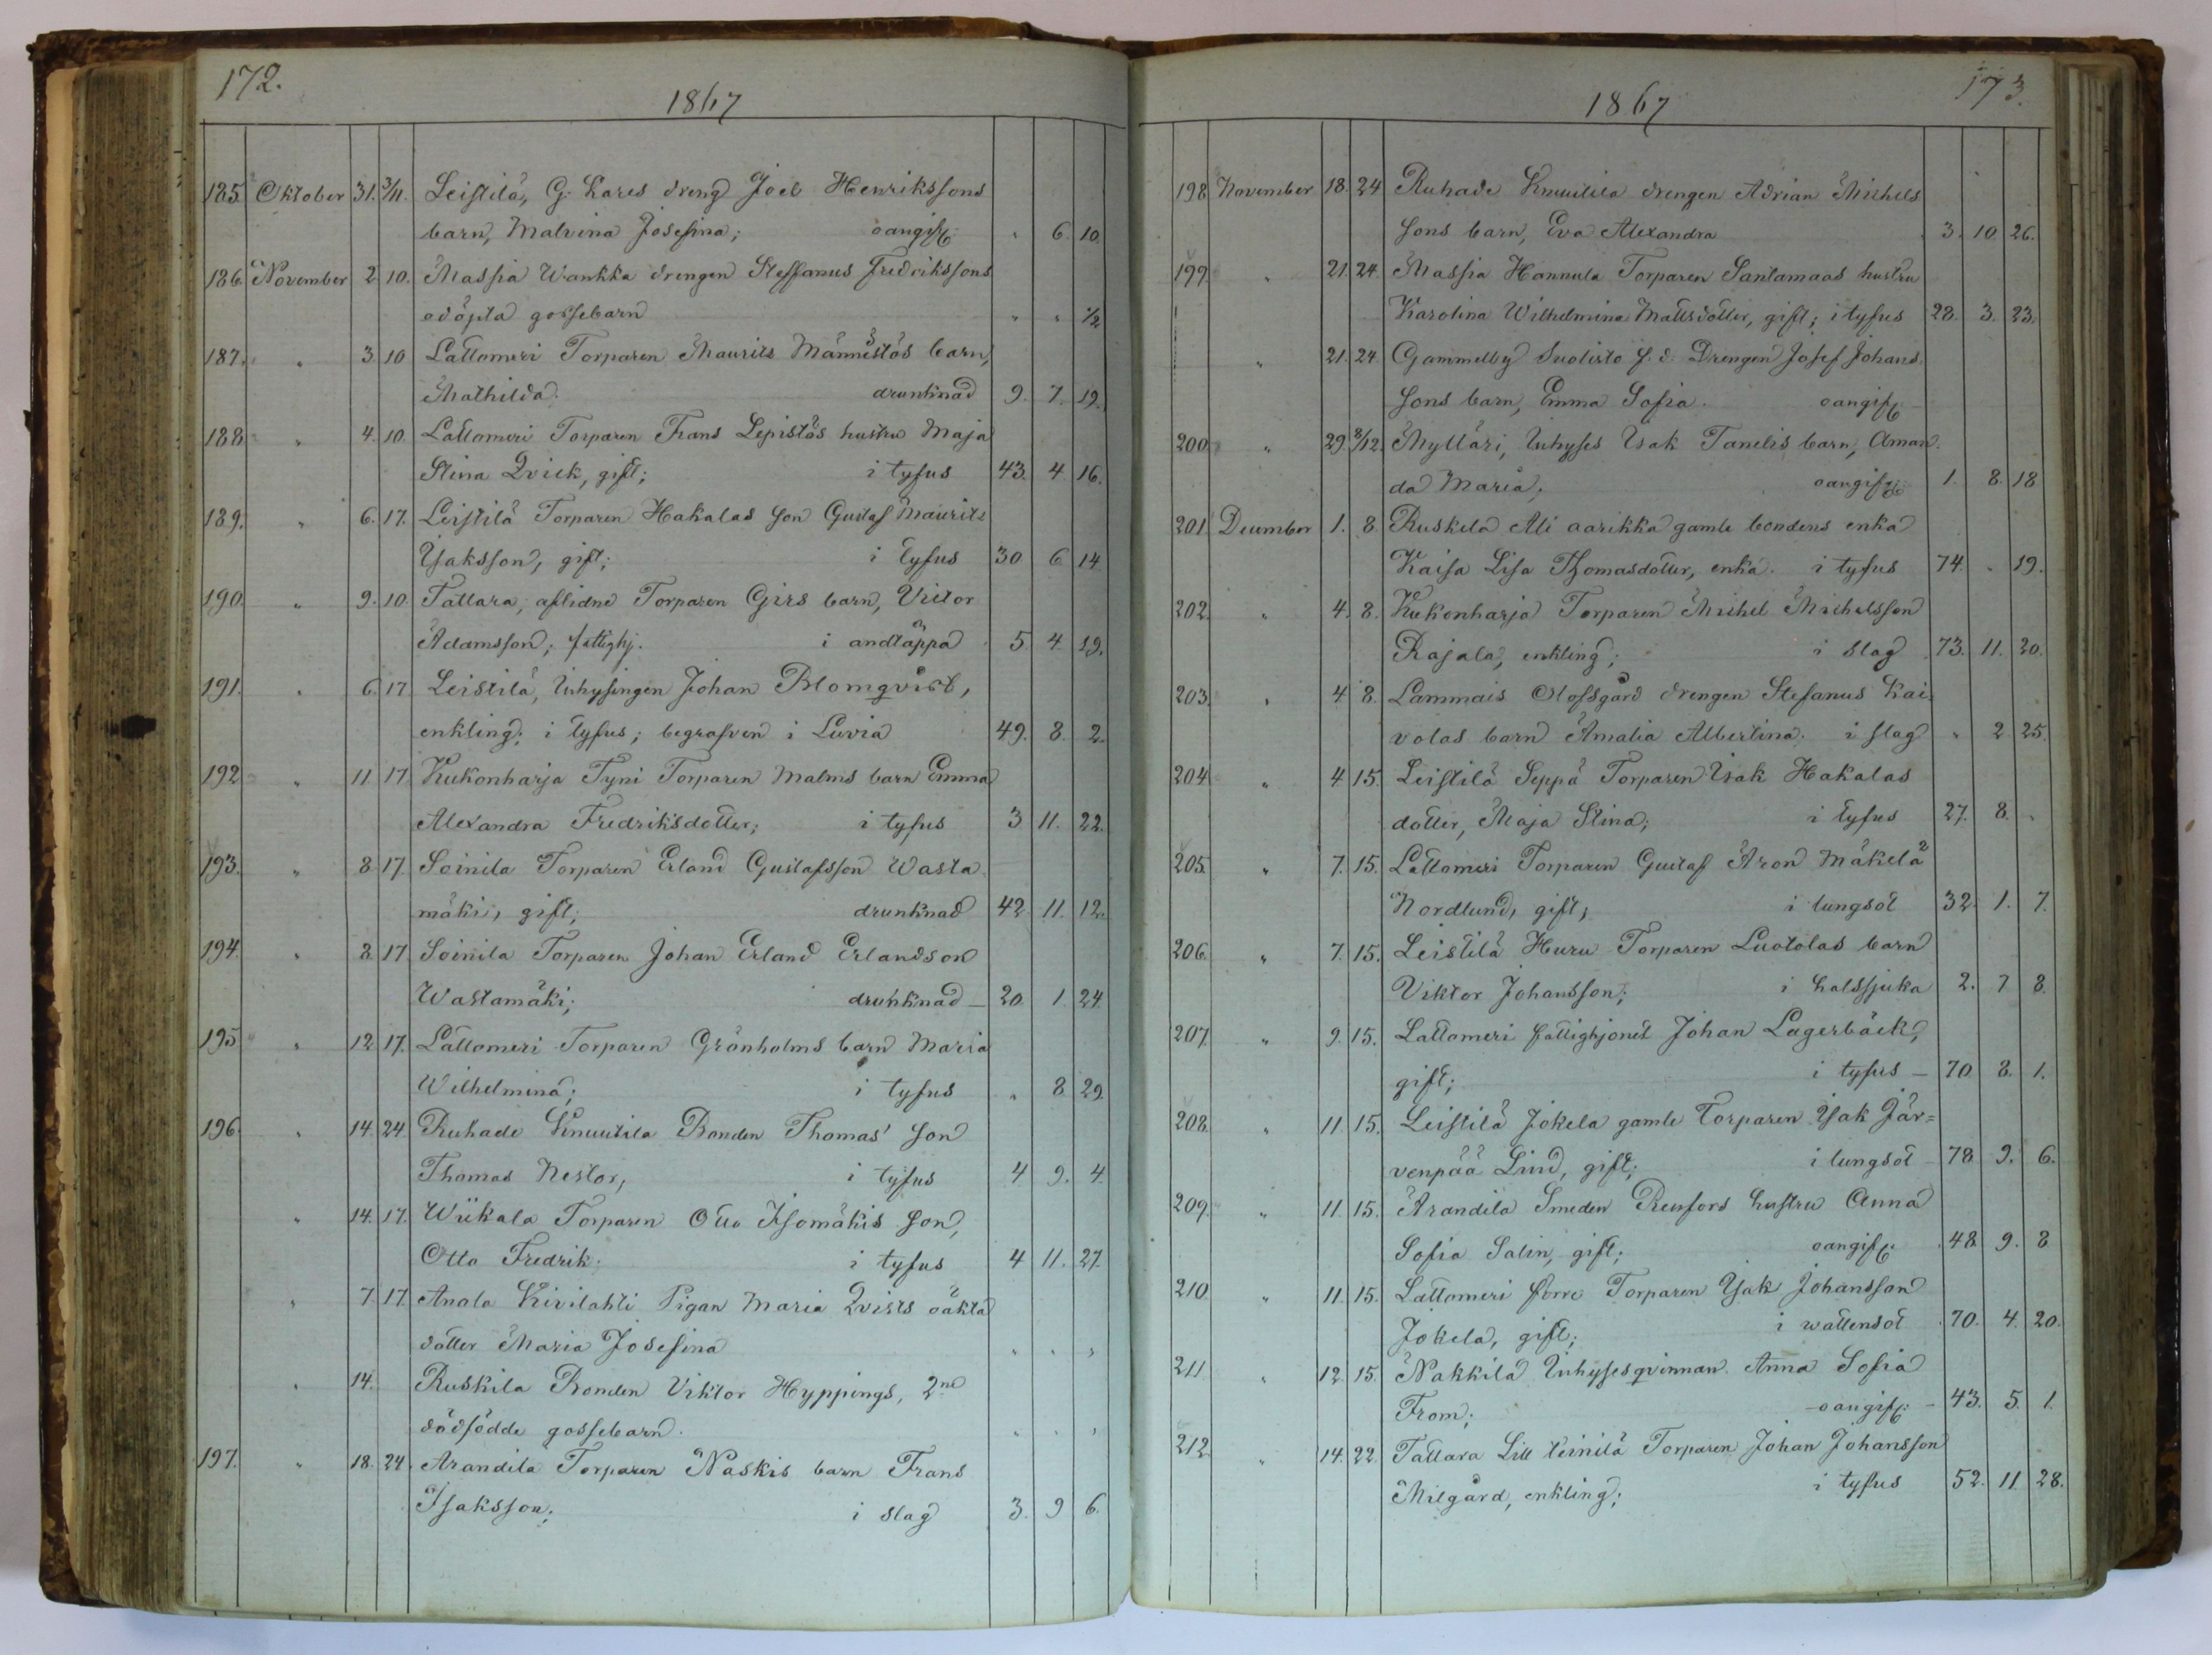 172.
1867
185. Oktober 31. 3/11. Leistilä, G. Kares dreng Joel Henrikssons
barn, Malvina Josefina; oangift. " 6. 10.
186. November 2. 10. Massia Wankka drengen Steffanus Fredrikssons
odöpta gossebarn " " 1/2
187. " 3. 10 Lattomeri Torparen Maurits Männistös barn,
Mathilda. drunknad 9. 7. 19.
188. " 4. 10. Lattomeri Torparen Frans Lepistös hustru Maja
Stina Qvick, gift; i tyfus 43. 4. 16.
189. " 6. 17. Leistilä Torparen Hakalas son Gustaf Maurits
Isaksson, gift; i tyfus 30 6 14
190. " 9. 10. Tattara, aflidne Torparen Girs barn, Victor
Adamsson; fattighj. i andtäppa 5 4. 19.
191. " 6. 17 Leistilä, Inhysingen Johan Blomqvist,
enkling; i tyfus; begrafven i Luvia 49. 8. 2.
192 " 11. 17. Kukonharja Tyni Torparen Malms barn Emma
Alexandra Fredriksdotter; i tyfus 3 11. 22.
193. " 8 17 Soinila Torparen Erland Gustafsson Wasta
mäki, gift; drunknad 42. 11. 12.
194. " 8. 17. Soinila Torparen Johan Erland Erlandson
Wastamäki; drunknad 20. 1. 24.
195 " 12. 17. Lattomeri Torparen Grönholms barn Maria
Wilhelmina; i tyfus " 8. 29.
196. " 14. 24. Ruhade Knuutila Bonden Thomas' son
Thomas Nestor, i tyfus 4 9. 4.
" 14. 17. Wiikala Torparen Otto Isomäkis son,
Otto Fredrik. i tyfus 4 11. 27.
" 7. 17 Anola Kivilahti Pigan Maria Qvists oäkta
dotter Maria Josefina " " "
" 14. Ruskila Bonden Viktor Hyppings, 2ne
dödfödde gossebarn. " " "
197. " 18. 24 Arandila Torparen Naskis barn Frans
Isaksson; i slag 3. 9 6.
173.
1867
198 November 18. 24 Ruhade Knuutila drengen Adrian Michels
sons barn, Eva Alexandra 3. 10. 26.
199. " 21. 24. Massia Hannula Torparen Santamaas hustru
Karolina Wilhelmina Mattsdotter, gift; i tyfus 28. 3. 23.
" 21. 24. Gammelby Suolisto f. d. Drengen Josef Johans
sons barn, Emma Sofia. oangift.
200. " 29. 8/12. Mylläri, Inhyses Isak Tanelis barn, Aman
da Maria; oangift. 1. 8. 18
201. December 1. 8. Ruskela Ali aarikka gamle bondens enka
Kaisa Lisa Thomasdotter, enka. i tyfus 74. " 19.
202. " 4. 8. Kukonharja Torparen Michel Michelsson
Rajala, enkling; i slag 73. 11. 20.
203. " 4 8. Lammais Olofsgård drengen Stefanus Kai
volas barn Amalia Albertina. i slag " 2 25.
204 " 4 15. Leistilä Seppä Torparen Isak Hakalas
dotter, Maja Stina; i tyfus 27. 8. "
205. " 7. 15. Lattomeri Torparen Gustaf Aron Mäkelä
Nordlund, gift; i lungsot 32. 1. 7.
206. " 7. 15. Leistilä Huru Torparen Luotolas barn
Viktor Johansson; i halssjuka 2. 7 8.
207. " 9. 15. Lattomeri fattighjonet Johan Lagerbäck,
gift; i tyfus 70. 8. 1.
208. " 11. 15. Leistilä Jokela gamle Torparen Isak Jär=
venpää Lind, gift; i lungsot 78. 9. 6.
209. " 11. 15. Arandila Smeden Renfors hustru Anna
Sofia Salin, gift; oangift. 48. 9. 8
210. " 11. 15. Lattomeri förre Torparen Isak Johansson
Jokela, gift; i wattensot 70. 4. 20.
211. " 12. 15. Nakkila Inhysesqvinnan Anna Sofia
From; oangift. 43. 5. 1.
212. " 14. 22. Tattara Lill teinilä Torparen Johan Johansson
Milgård, enkling; i tyfus 52. 11. 28.